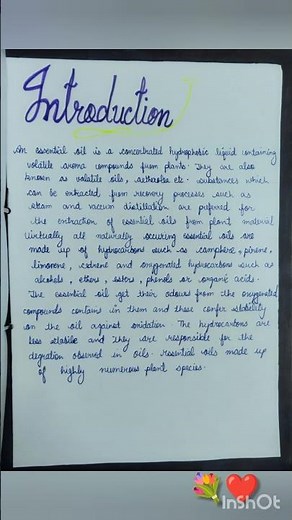 Introduction
An essential oil is a concentrated hydrophobic liquid containing
volatile aroma compounds from plants. They are also
known as volatile oils, aetherolea etc. substances which
can be extracted from recovery processes such as
steam and vacuum distillation are prefered for
the extraction of essential oils from plant material
Virtually all naturally occuring essential oils are
made up of hydrocarbons such as camphene, pinene,
limonene, cedrene and oxygenated hydrocarbons such as
alcohols, ethers, esters, phenols or organic acids.
The essential oil get their odours from the oxygenated
compounds contains in them and these confer stability
on the oil against oxidation. The hydrocarbons are
less stable and They are responsible for the
degration observed in oils. essential oils made up
of highly numerous plant species.
InShOt